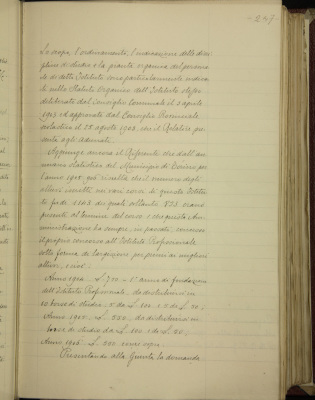 247
Lo scopo, l'ordinamento, l'indicazione delle disci-
pline di studio e la pianta organica del persona-
le di detto Istituto sono particolarmente indica-
te nello Statuto organico dell'Istituto stesso
deliberato dal Consiglio Comunale il 3 agosto
1903 ed approvato dal Consiglio Provinciale
scolastico il 22 agosto 1903, con il Relativo
agli Adunati.
Aggiunge ancora il Riferente che dall'an-
nuario Statistico del Municipio di Torino per
l'anno 1905 si rileva che il numero degli
allievi iscritti nei vari corsi di questo Istitu-
to fu di 1102 dei quali soltanto 833 erano
presenti al termine del corso e che questa Am-
ministrazione ha sempre, in passato, concesso
il proprio concorso all'Istituto Professionale
sotto forma di largizioni per premi ai migliori
allievi, e cioè:
Anno 1904 - L. 700 - 1° anno di fondazione
dell'Istituto Professionale, da distribuirsi in
10 borse di studio, 5 da L. 100 e 5 da L. 40;
Anno 1905 - L. 220, da distribuirsi in
borse di studio da L. 100 e da L. 20;
Anno 1906 - L. 200 come sopra.
Presentando alla Giunta la domanda